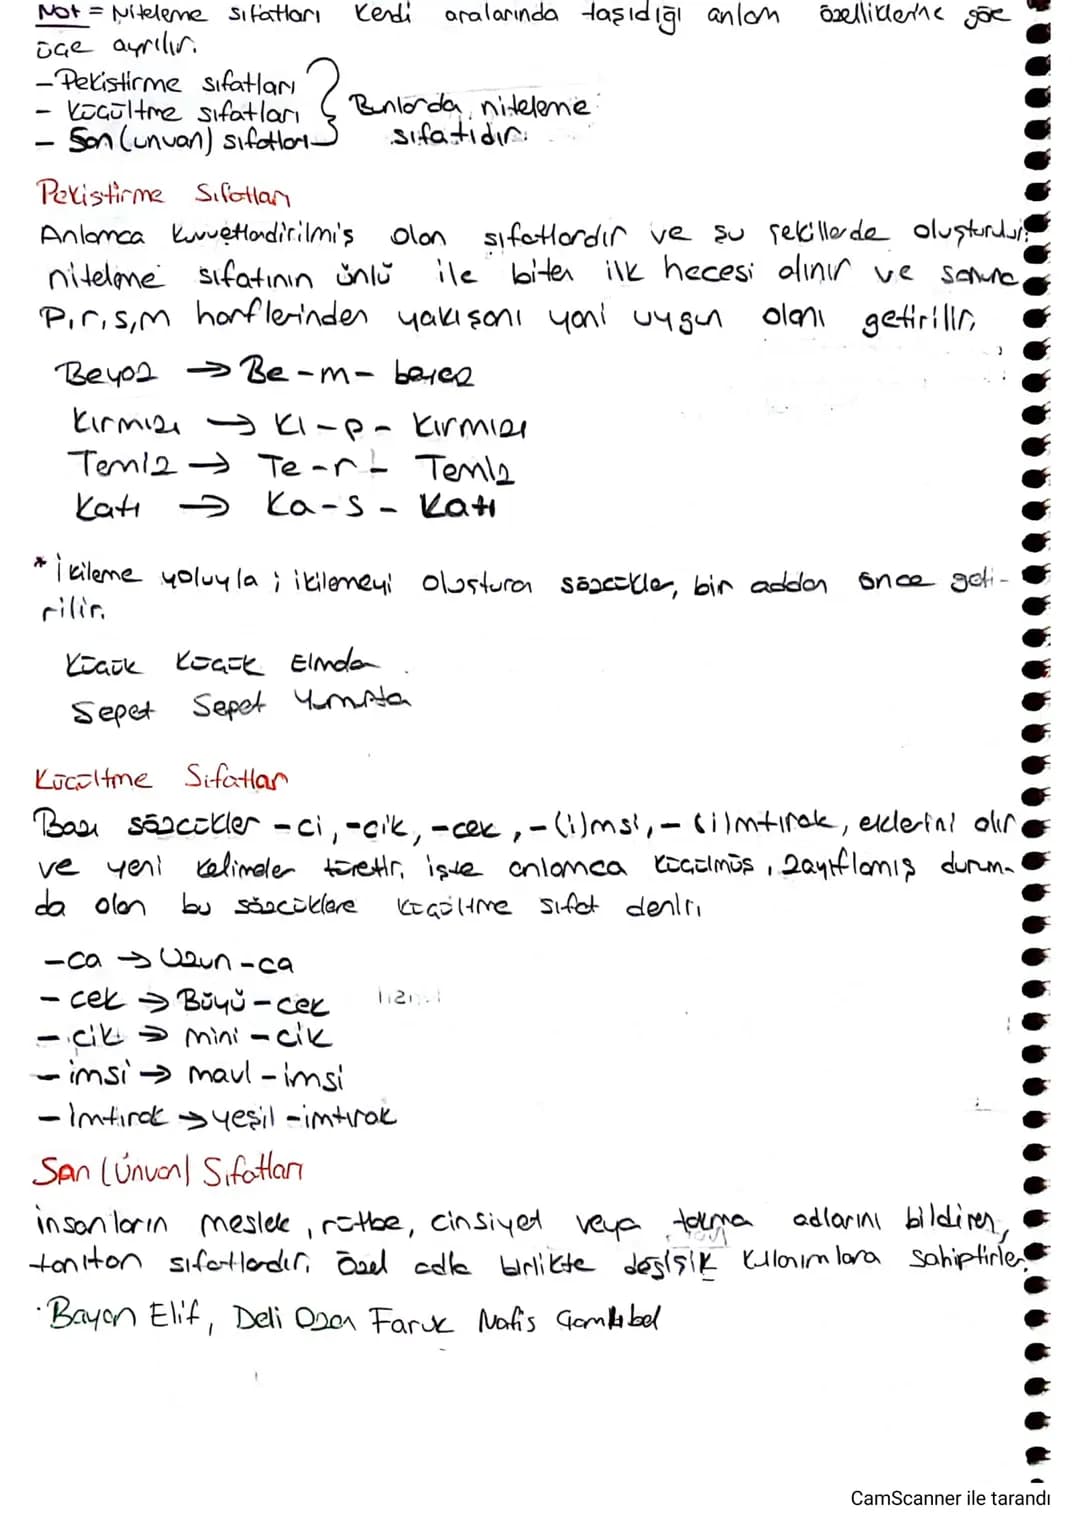 Not = Niteleme sıfatları kendi aralarında taşıdığı anlam özelliklerine göre
üçe ayrılır.
- Pekistirme sıfatları
- Küçültme sıfatları
- San (unvan) sıfatları
Bunlarda niteleme
sıfatıdır.
Pekistirme Sıfatları
Anlamca kuvvetlendirilmiş olan sıfatlardır ve şu şekillerde oluşturulur:
niteleme sıfatının ünlü ile biten ilk hecesi alınır ve sonra
P,r,s,m harflerinden yakışanı yani uygun olanı getirilir.
Beyaz → Be-m- beyaz
Kırmızı → Kı-p- Kırmızı
Temiz → Te-r- Temiz
Katı → Ka-s- Katı
* İkileme yoluyla ; ikilemeyi oluşturan sözcükler, bir addan önce geti-
rilir.
Küçük Küçük Elmalar
Sepet Sepet Yumurta
Küçültme Sıfatları
Bazı sözcükler -ci, -cik, -cek, -(i)msi, -(i)mtırak, eklerini alır
ve yeni kelimeler türetir. işte anlamca küçülmüş, zayıflamış durum-
da olan bu sözcüklere küçültme sıfat denir.
-ca → Uzun-ca
- cek → Büyü-cek
- cik → mini-cik
- imsi → mavi-imsi
- İmtırak → yeşil-imtırak
San (Ünvan) Sıfatları
insanların meslek, rütbe, cinsiyet veya takma adlarını bildiren,
tanıtan sıfatlardır. Özel adla birlikte değişik kullanımlara sahiptirler.
· Bayan Elif, Deli Ozan Faruk Nafis Çamlıbel
CamScanner ile tarandı